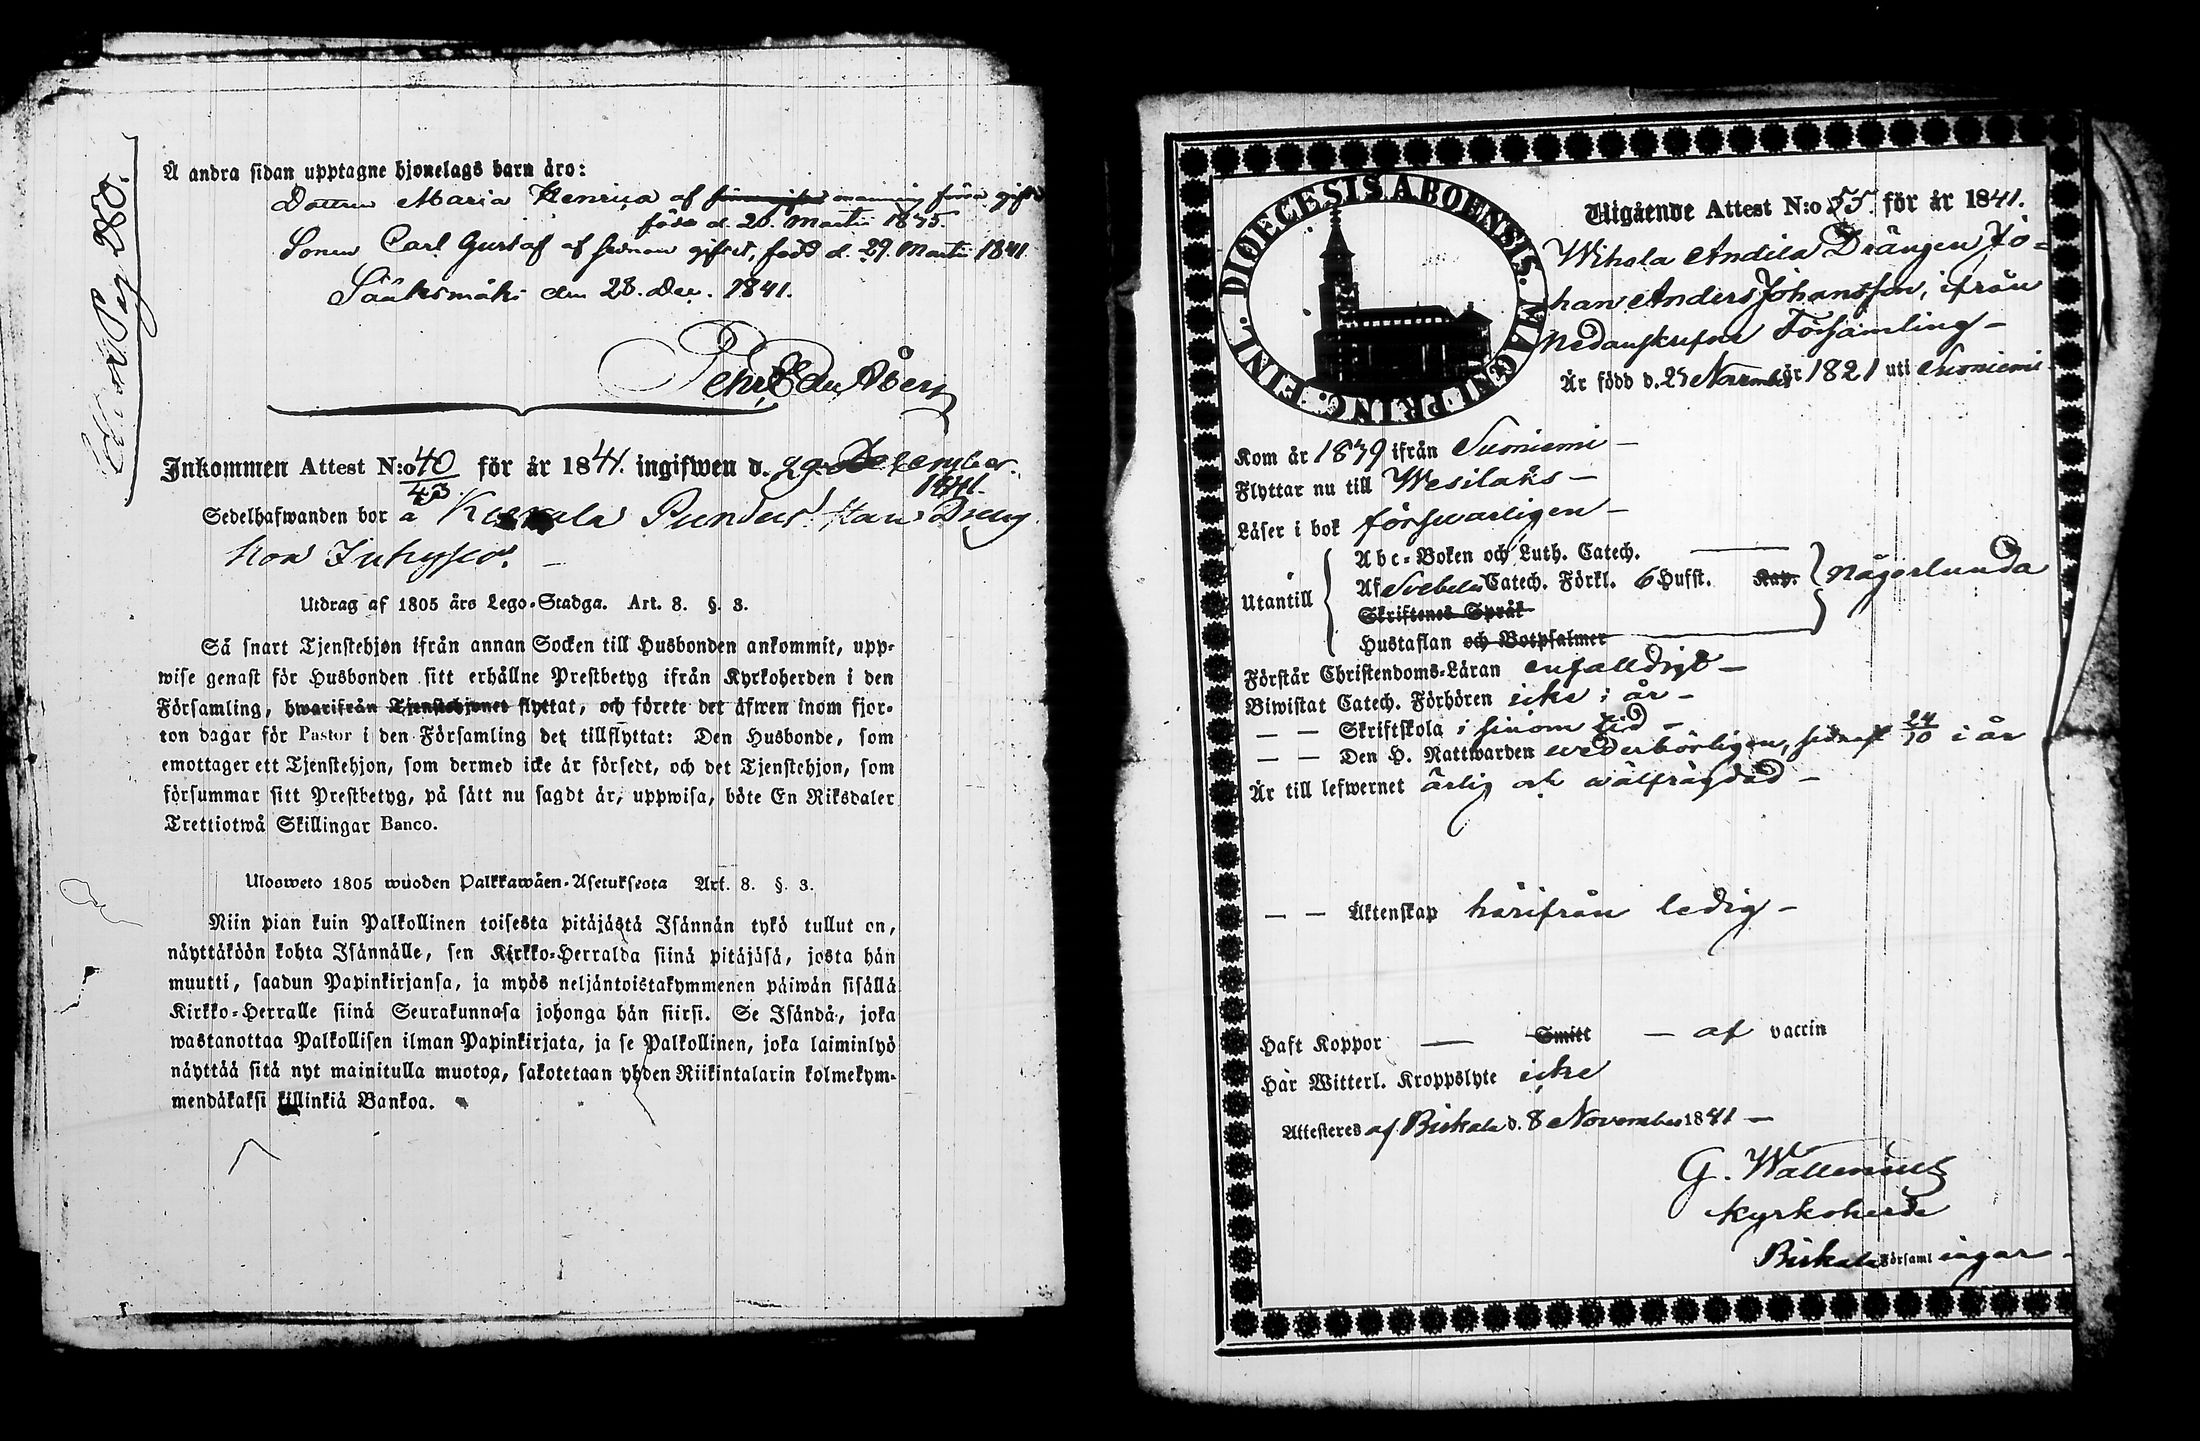 Å andra sidan upptagne hjonelags barn äro:
Dottren Maria Henrica af mannens förra gifte
född d. 26. Martii 1835.
Sonen Carl Gustaf af sednare giftet, född d. 29. Martii 1841
Sääksmäki den 28. Dec. 1841.
Pehr Edv. Åberg
Pag 280.
Inkommen Attest N:o 40/43 för år 1841. ingifwen d. 29 December
1841.
Sedelhafwanden bor å Punder
hos
Utdrag af 1805 års Lego-Stadga. Art. 8. §. 3.
Så snart Tjenstehjon ifrån annan Socken till Husbonden ankommit, upp-
wise genast för Husbonden sitt erhållne Prestbetyg ifrån Kyrkoherden i den
Församling, hwarifrån Tjenstehjonet flyttat, och förete det äfwen inom fjor-
ton dagar för Pastor i den Församling det tillflyttat: Den Husbonde, som
emottager ett Tjenstehjon, som dermed icke är försedt, och det Tjenstehjon, som
försummar sitt Prestbetyg, på sätt nu sagdt är, uppwisa, böte En Riksdaler
Trettiotwå Skillingar Banco.
Ulosweto 1805 wuoden Palkkawäen-Asetuksesta Art. 8. §. 3.
Niin pian kuin Palkollinen toisesta pitäjästä Isännän tykö tullut on,
näyttäköön kohta Isännälle, sen Kirkko-Herralda siinä pitäjäsä, josta hän
muutti, saadun Papinkirjansa, ja myös neljäntoistakymmenen päiwän sisällä
Kirkko-Herralle siinä Seurakunnasa johonga hän siirsi. Se Isändä, joka
wastanottaa Palkollisen ilman Papinkirjata, ja se Palkollinen, joka laiminlyö
näyttää sitä nyt mainitulla muotoa, sakotetaan yhden Riikintalarin kolmekym-
mendäkaksi killinkiä Bankoa.
DIOECESIS ABOENSIS. MAGNI PRINC. FINL.
Utgående Attest N:o 55. för år 1841.
Wihola Andila Drängen Jo=
han Anders Johansson, ifrån
nedanskrefne Församling –
Är född d. 25 November år 1821 uti Suoniemi
Kom år 1839 ifrån Suoniemi –
Flyttar nu till Wesilaks –
Läser i bok förswarligen –
Utantill
Abc-Boken och Luth. Catech.
Af Svebelii Catech. Förkl. 6 Hufst. Kap. någorlunda
Skriftenes Språk
Hustaflan och Botpsalmer
Förstår Christendoms-Läran enfalldigt –
Biwistat Catech. Förhören icke i år –
— — Skriftskola i sinom tid –
— — Den H. Nattwarden wederbörligen, sednast 24/10 i år
Är till lefwernet ärlig och wälfrägdad –
— — Äktenskap härifrån ledig –
Haft Koppor — Smitt — af vaccin
Har Witterl. Kroppslyte icke
Attesteres af Birkala d. 8 November 1841 —
G. Wallenius
Kyrkoherde
Birkala Församl ingar –